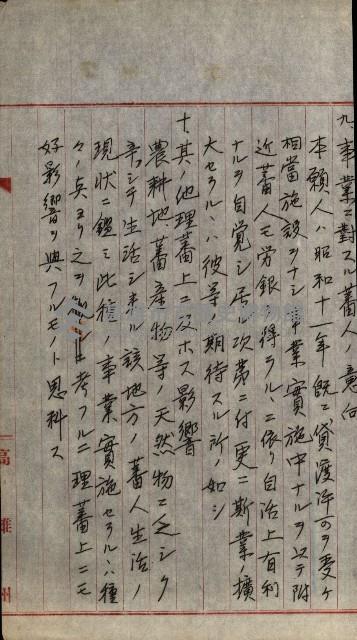 九、事業ニ対スル蕃人ノ意向
本願人ハ昭和十一年既ニ貸渡許可ヲ受ケ
相當施設ヲナシ事業實施中ナルヲ以テ附
近蕃人モ労銀ヲ得ラルヽニ依リ自治上有利
ナルヲ自覚シ居ル次第ニ付更ニ斯業ノ擴
大セラルヽハ彼等ノ期待スル所ノ如シ
十、其ノ他理蕃上ニ及ホス影響
農耕地、蕃産物等ノ天然物ニ乏シク
シテ生活シ該地方ノ蕃人生活ノ
現状ニ鑑ミ此種ノ事業實施セラルヽハ種
々ノ点ヨリ之ヲ考フルニ理蕃上ニモ
好影響ヲ與フルモノト思料ス
高雄州